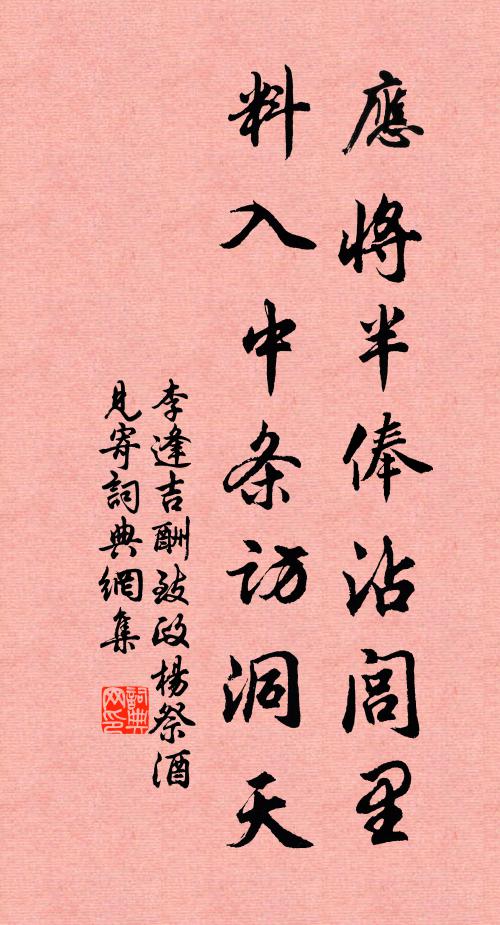 應將半俸沾閭里
料入中条訪洞天
李逢吉酬致政楊祭酒
見寄詞典網集
詞典
网印